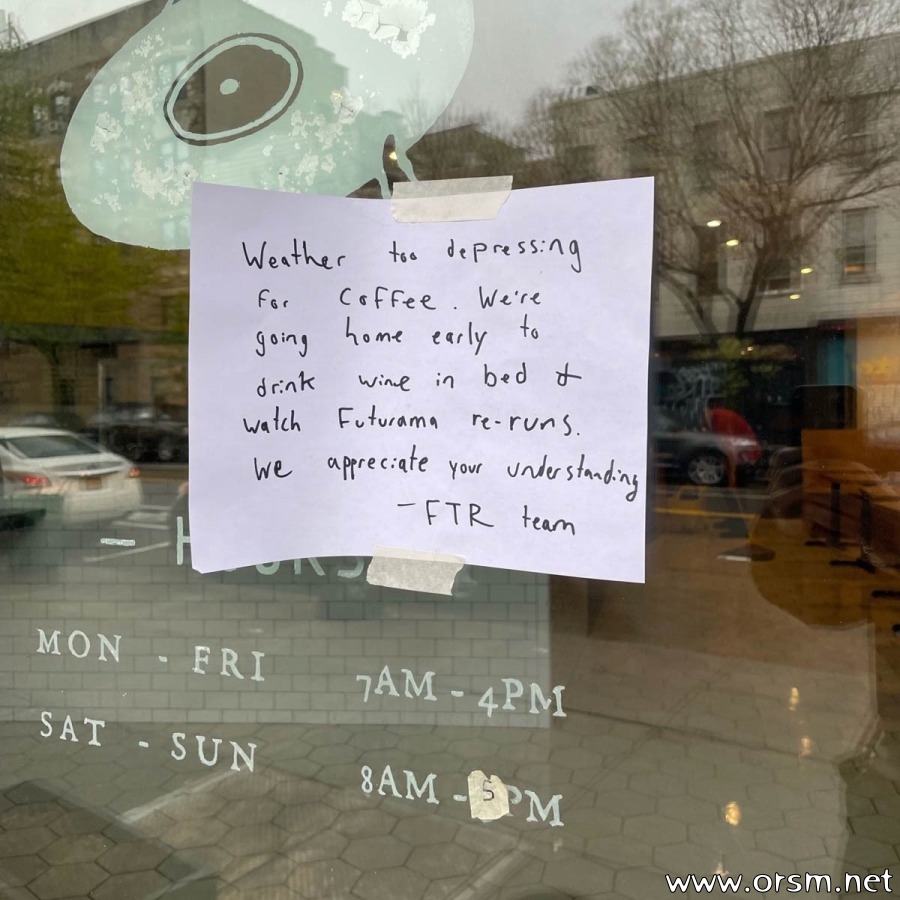 Weather too depressing
for coffee. We're
going home early to
drink wine in bed &
watch Futurama re-runs.
We appreciate your understanding
- FTR team
- HOURS
MON - FRI 7AM - 4PM
SAT - SUN 8AM - 5PM
www.orsm.net